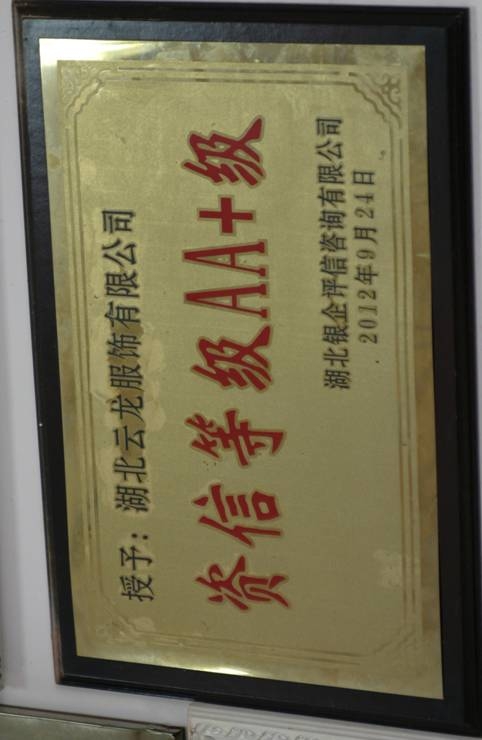 授予：湖北云龙服饰有限公司
资信等级AA+级
湖北银企评信咨询有限公司
2012年9月24日